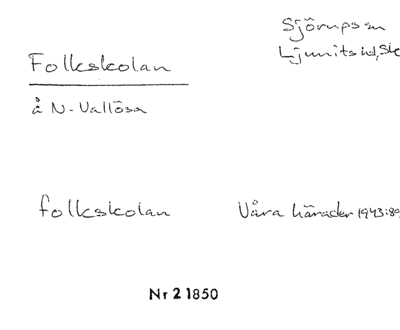 Sjörups sn
Ljunits hd, Sk
Folkskolan
å N. Vallösa
folkskolan
Våra härader 1943:89
Nr 21850